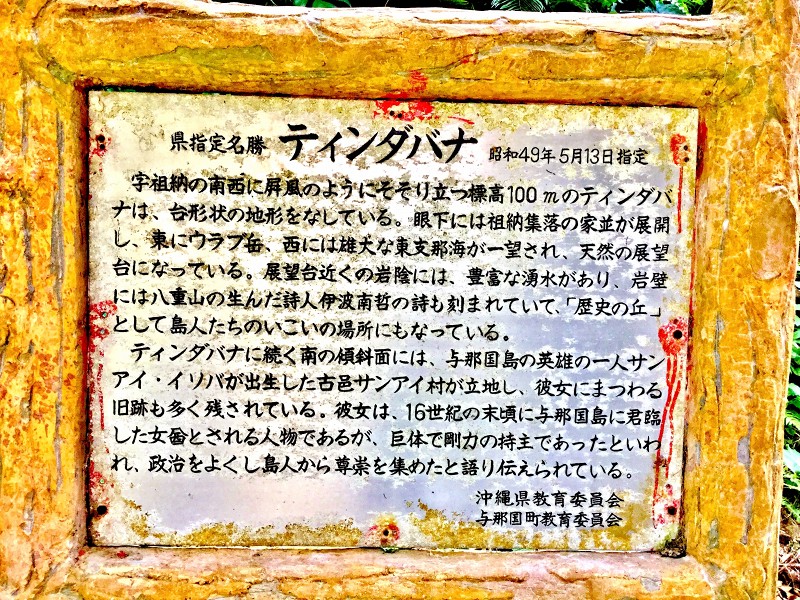 県指定名勝 ティンダバナ 昭和49年5月13日指定
字祖納の南西に屏風のようにそそり立つ標高100mのティンダバ
ナは、台形状の地形をなしている。眼下には祖納集落の家並が展開
し、東にウラブ岳、西には雄大な東支那海が一望され、天然の展望
台になっている。展望台近くの岩陰には、豊富な湧水があり、岩壁
には八重山の生んだ詩人伊波南哲の詩も刻まれていて、「歴史の丘」
として島人たちのいこいの場所にもなっている。
ティンダバナに続く南の傾斜面には、与那国島の英雄の一人サン
アイ・イソバが出生した古邑サンアイ村が立地し、彼女にまつわる
旧跡も多く残されている。彼女は、16世紀の末頃に与那国島に君臨
した女酋とされる人物であるが、巨体で剛力の持主であったといわ
れ、政治をよくし島人から尊崇を集めたと語り伝えられている。
沖縄県教育委員会
与那国町教育委員会